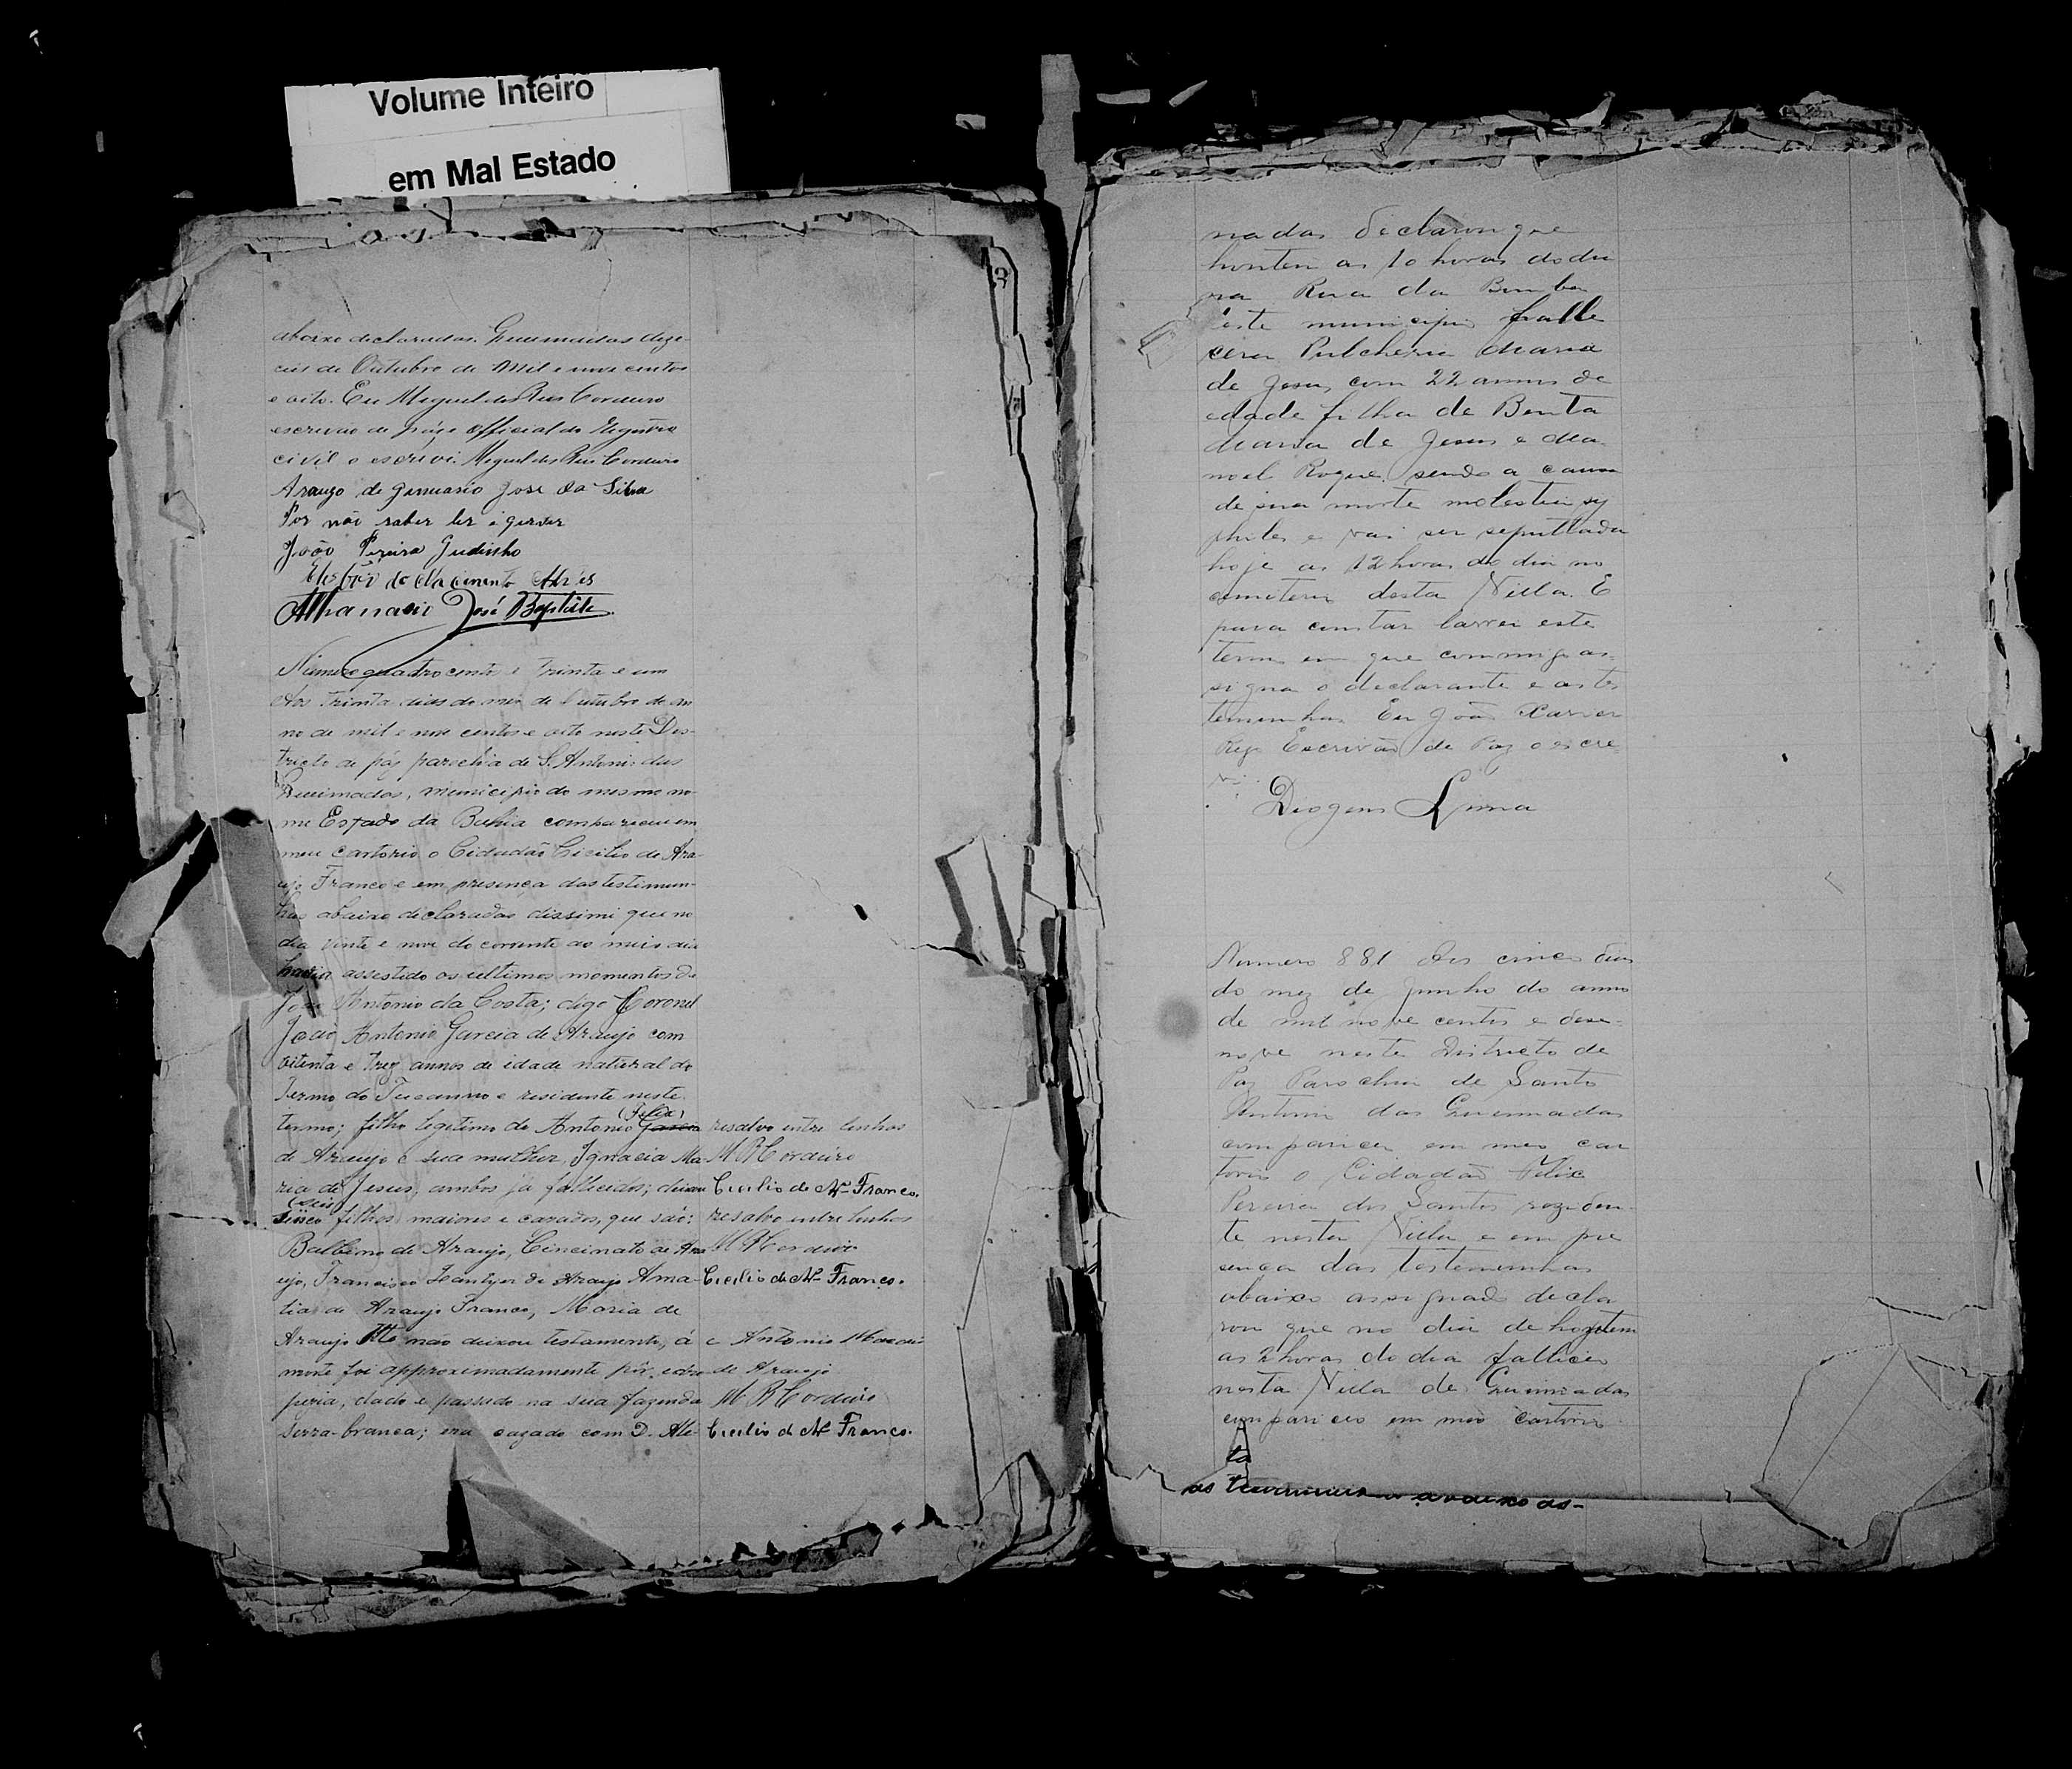 Volume Inteiro
em Mal Estado
abaixo declaradas. Queimadas deze-
ceis de Outubro de Mil e nove centos
e oito. Eu Miguel dos Reis Cordeiro
escrivão de páz e Official do Registro
civil o escrevi. Miguel dos Reis Cordeiro
Araujo de Januario José da Silva
Por não saber ler
João Pereira Gudinho
do Nascimento Alves
Athanasio José Baptista
Numero quatro centos e trinta e um
Aos trinta dias do mes de Outubro do an
no de mil e nove centos e oito neste Des-
tricto de páz parochia de S. Antonio das
Queimadas, municipio do mesmo no-
me Estado da Bahia compareceu em
meu cartorio o Cidadão Cicilio de Ara-
ujo Franco e em presença das testimun-
has abaixo declaradas dissimi que no
dia vinte e nove do corrente ao meio dia
havia assestido os ultimos momentos de
João Antonio da Costa; digo Coronel
João Antonio Garcia de Araujo com
oitenta e trez annos de idade natural do
Termo do Tucanno e residente neste
(Felix)
termo; filho legitimo de Antonio Garcia resalvo entre linhas
de Araujo e sua mulher, Ignacia Ma- M R Cordeiro
ria de Jesus, ambos já fallicidos; deixou Cicilio de Ar.º Franco.
(seis)
sinco filhos maiores e cazados, que são: resalvo entre linhas
Balbino de Araujo, Cincinato de Ara M R Cordeiro
ujo, Francisco de Araujo Ama- Cicilio de Ar.º Franco.
tias de Araujo Franco, Maria de
Araujo não deixou testamento, á e Antonio
morte foi approximadamente por de Araujo
dado e passado na sua fazenda M R Cordeiro
Serra-branca; era cazado com D. Ale- Cicilio de Ar.º Franco.
nadas declarou que
hontem as 10 horas do dia
na Rua da Bomba
este municipio falle
cera Pulcheria Maria
de Jesus, com 22 annos de
edade filha de Benta
Maria de Jesus e Ma-
noel Roque, sendo a causa
de sua morte molestia sy
philes e vai ser sepultada
hoje as 12 horas do dia no
cemiterio desta Villa. E
para constar lavrei este
termo em que commigo as-
signa o declarante e as tes
temunhas Eu João Xavier
Rego Escrivão de Paz o escre
vi.
Diogens Lima
Numero 881 Aos cinco dias
do mez de Junho do anno
de mil nove centos e deze-
nove neste Districto de
Paz Parochia de Santo
Antonio das Queimadas
compareceu em meu car
torio o Cidadão Felix
Pereira dos Santos reziden-
te nesta Villa e em pre
sença das testemunhas
abaixo assignado decla
rou que no dia de hontem
as 2 horas do dia falliceu
nesta Villa de Queimadas
compareceu em meo cartorio
ta
as abaixo as-